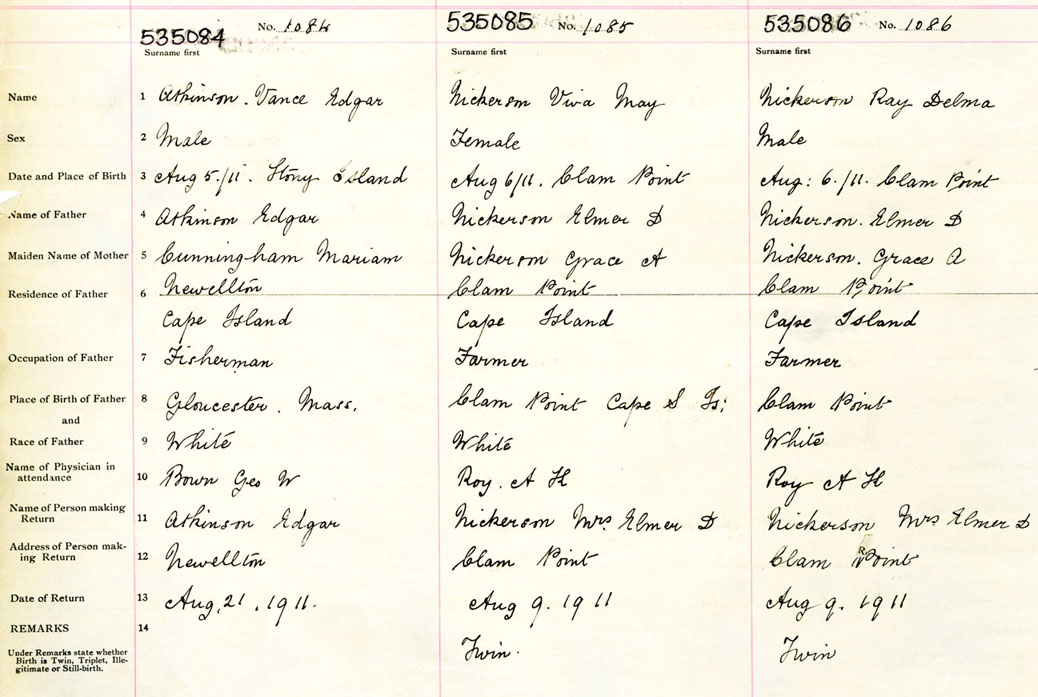 535084 No. 1084 535085 No. 1085 535086 No. 1086
Surname first Surname first Surname first
Name 1 Atkinson. Vance Edgar Nickerson Viva May Nickerson Ray Delma
Sex 2 Male Female Male
Date and Place of Birth 3 Aug 5./11. Stony Island Aug 6/11. Clam Point Aug: 6./11. Clam Point
Name of Father 4 Atkinson Edgar Nickerson Elmer D Nickerson. Elmer D
Maiden Name of Mother 5 Cunningham Mariam Nickerson Grace A Nickerson. Grace A
Residence of Father 6 Newellton Clam Point Clam Point
Cape Island Cape Island Cape Island
Occupation of Father 7 Fisherman Farmer Farmer
Place of Birth of Father 8 Gloucester. Mass. Clam Point Cape S Is: Clam Point
and
Race of Father 9 White White White
Name of Physician in
attendance 10 Bown Geo W Roy. A H Roy A H
Name of Person making
Return 11 Atkinson Edgar Nickerson Mrs Elmer D Nickerson Mrs Elmer D
Address of Person mak-
ing Return 12 Newellton Clam Point Clam Point
Date of Return 13 Aug, 21, 1911. Aug 9. 1911 Aug 9. 1911
REMARKS 14
Under Remarks state whether
Birth is Twin, Triplet, Ille-
gitimate or Still-birth. Twin. Twin